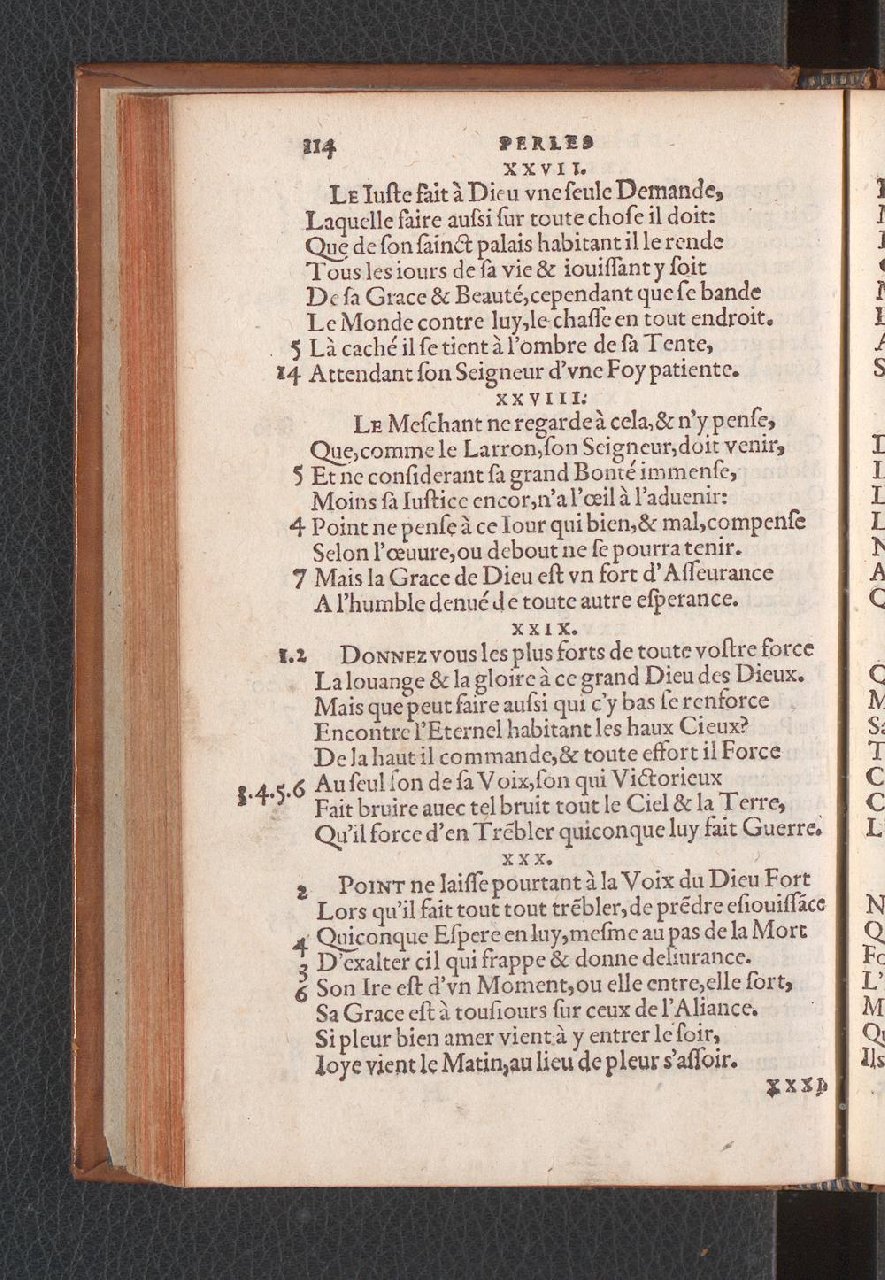 114 PERLES
XXVII.
LE Iuſte fait à Dieu vne ſeule Demande,
Laquelle faire auſsi ſur toute choſe il doit:
Que de ſon ſainct palais habitant il le rende
Tous les iours de ſa vie & iouiſſant y ſoit
De ſa Grace & Beauté, cependant que ſe bande
Le Monde contre luy, le chaſſe en tout endroit.
5 Là caché il ſe tient à l'ombre de ſa Tente,
14 Attendant ſon Seigneur d'vne Foy patiente.
XXVIII.
LE Meſchant ne regarde à cela, & n'y penſe,
Que, comme le Larron, ſon Seigneur, doit venir,
5 Et ne conſiderant ſa grand Bonté immenſe,
Moins ſa Iuſtice encor, n'a l'œil à l'aduenir:
4 Point ne penſe à ce Iour qui bien, & mal, compenſe
Selon l'œuure, ou debout ne ſe pourra tenir.
7 Mais la Grace de Dieu eſt vn fort d'Aſſeurance
A l'humble denué de toute autre eſperance.
XXIX.
1.2 DONNEZ vous les plus forts de toute voſtre force
La louange & la gloire à ce grand Dieu des Dieux.
Mais que peut faire auſsi qui c'y bas ſe renforce
Encontre l'Eternel habitant les haux Cieux?
De la haut il commande, & toute effort il Force
3.4.5.6 Au ſeul ſon de ſa Voix, ſon qui Victorieux
Fait bruire auec tel bruit tout le Ciel & la Terre,
Qu'il force d'en Trẽbler quiconque luy fait Guerre.
XXX.
2 POINT ne laiſſe pourtant à la Voix du Dieu Fort
Lors qu'il fait tout tout trẽbler, de prẽdre eſiouiſſãce
4 Quiconque Eſpere en luy, meſme au pas de la Mort
3 D'exalter cil qui frappe & donne deliurance.
6 Son Ire eſt d'vn Moment, ou elle entre, elle ſort,
Sa Grace eſt à touſiours ſur ceux de l'Aliance.
Si pleur bien amer vient à y entrer le ſoir,
Ioye vient le Matin, au lieu de pleur s'aſſoir.
XXXI.